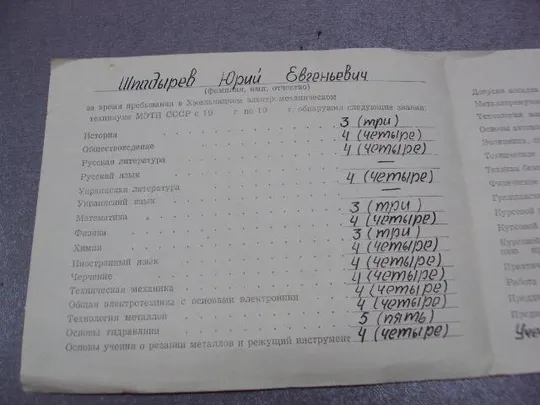 Шпадырев Юрий Евгеньевич
(фамилия, имя, отчество)
за время пребывания в Хмельницком электромеханическом
техникуме МЭТП СССР с 19 г по 19 г обнаружил следующие знания:
История 3 (три)
Обществоведение 4 (четыре)
Русская литература 4 (четыре)
Русский язык —
Украинская литература 4 (четыре)
Украинский язык —
Математика 3 (три)
Физика 4 (четыре)
Химия 3 (три)
Иностранный язык 4 (четыре)
Черчение 4 (четыре)
Техническая механика 4 (четыре)
Общая электротехника с основами электроники 4 (четыре)
Технология металлов 4 (четыре)
Основы гидравлики 5 (пять)
Основы учения о резании металлов и режущий инструмент 4 (четыре)
Техническое
Физическое
Курсовой
Курсовой
Работа